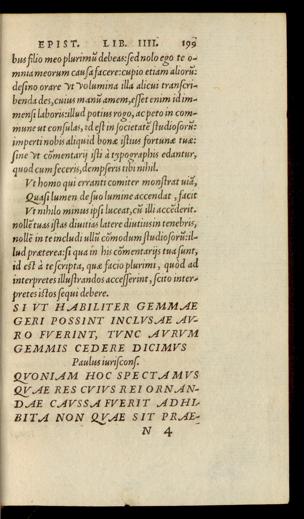 EPIST. LIB. IIII. 199
bus filio meo plurimũ debeas: sed nolo ego te o-
mnia meorum causa facere: cupio etiam aliorũ:
desino orare ut volumina illa alicui transcri-
benda des, cuius manũ amem, esset enim id im-
mensi laboris: illud potius rogo, ac peto in com-
mune ut consulas, id est in societatẽ studiosorũ:
imperti nobis aliquid bonæ istius fortunæ tuæ:
sine ut cõmentarij isti à typographis edantur,
quod cum feceris, dempseris tibi nihil.
Vt homo qui erranti comiter monstrat viã,
Quasi lumen de suo lumine accendat, facit
Vt nihilo minus ipsi luceat, cũ illi accẽderit.
nollẽ tuas istas divitias latere diutius in tenebris,
nollẽ in te includi ullũ cõmodum studiosorũ: il-
lud præterea: si qua in his cõmentarijs tua sunt,
id est à te scripta, quæ facio plurimi, quòd ad
interpretes illustrandos accesserint, scito inter-
pretes ictos sequi debere.
SI VT HABILITER GEMMAE
GERI POSSINT INCLVSAE AV-
RO FVERINT, TVNC AVRVM
GEMMIS CEDERE DICIMVS
Paulus iuriscons.
QVONIAM HOC SPECTAMVS
QVAE RES CVIVS REI ORNAN-
DAE CAVSSA FVERIT ADHI-
BITA NON QVAE SIT PRAE-
N 4